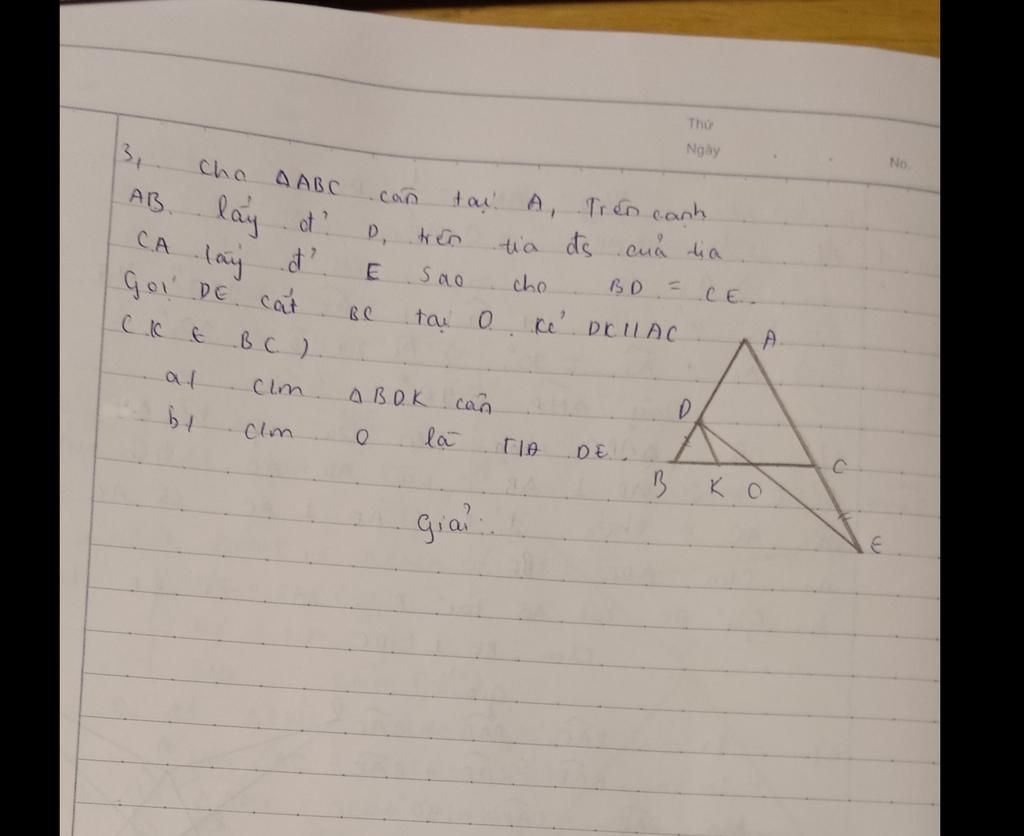 Thứ
Ngày
No.
3, Cho ΔABC cân tại A, Trên cạnh
AB lấy đ' D, trên tia đs của tia
CA lấy đ' E sao cho BD = CE.
Gọi DE cắt BC tại O. Kẻ DK//AC
(K ∈ BC)
a/ Clm ΔBDK cân
b/ Clm O là TĐ DE.
Giải:
A
D
B K O C
E